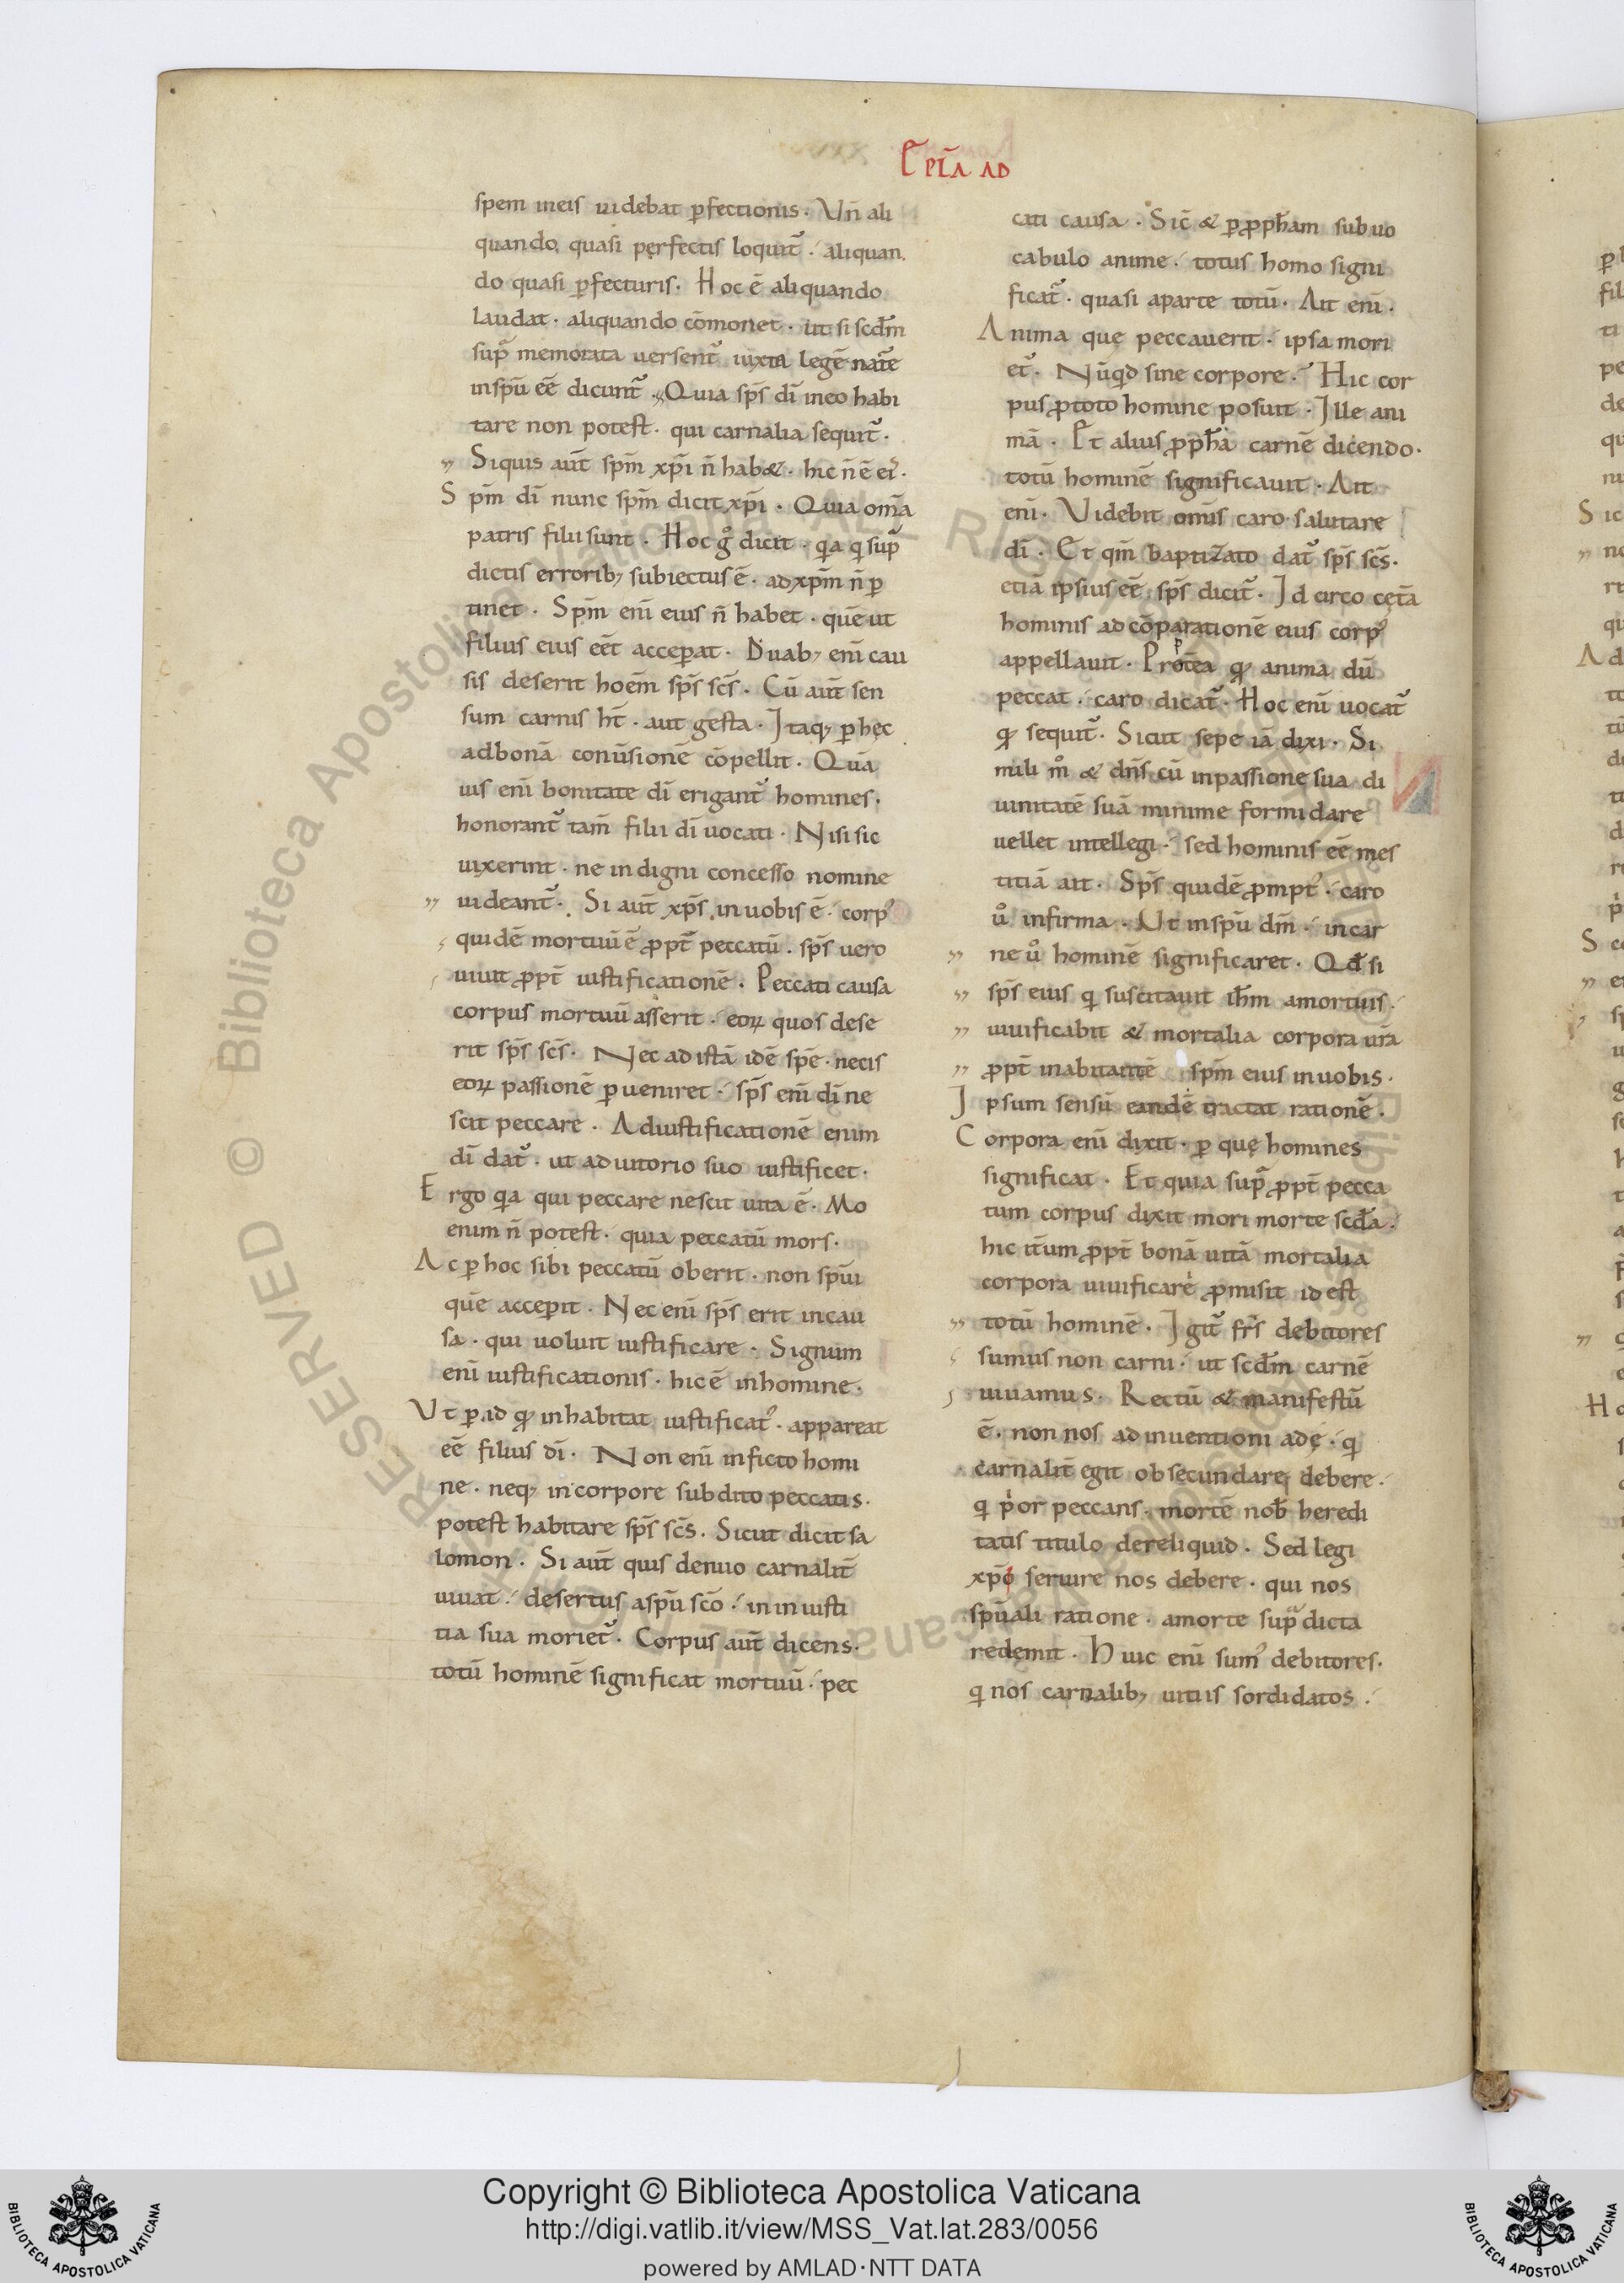 Epl̄a ad
spem ineis uidebat ꝑfectionis. Vn̄ ali
quando quasi perfectis loquit᷑. aliquan
do quasi ꝑfecturis. Hoc ē aliquando
laudat. aliquando cōmonet. ut si scd̄m
sup̄ memorata uersent᷑ iuxta legē nat̄e
insp̄u eē dicunt᷑. Quia sp̄s dī ineo habi
tare non potest. qui carnalia sequit᷑.
Siquis aut̄ sp̄m xp̄i n̄ hab&. hic n̄ ē ei᷒.
Sp̄m dī nunc sp̄m dicit xp̄i. Quia om̄a
patris filii sunt. Hoc gͦ dicit. q̄a q̄ sup̄
dictis errorib; subiectus ē. ad xp̄m n̄ ꝑ
tinet. Sp̄m enī eius n̄ habet. quē ut
filius eius eēt acceꝑat. Duab; enī cau
sis deserit hoēm sp̄s sc̄s. Cū aut̄ sen
sum carnis ht̄. aut gesta. Itaq; ꝑ hęc
adbonā conūsionē cōpellit. Quā
uis enī bonitate dī erigant᷑ homines.
honorant᷑ tam̄ filii dī uocati. Nisi sic
uixerint. ne indigni concesso nomine
uideant᷑. Si aut̄ xp̄s inuobis ē. corp᷒
quidē mortuū ē ꝓpt̄ peccatū. sp̄s uero
uiuit ꝓpt̄ iustificationē. Peccati causa
corpus mortuū asserit. eoꝝ quos dese
rit sp̄s sc̄s. Nec ad istā idē spē. necis
eoꝝ passionē ꝑueniret. sp̄s enī dī ne
scit peccare. Adiustificationē enim
dī dat᷑. ut adiutorio suo iustificet.
Ergo q̄a qui peccare nescit uita ē. Mo
enim n̄ potest. quia peccatū mors.
Ac ꝑ hoc sibi peccatū oberit. non sp̄ui
quē acceꝑit. Nec enī sp̄s erit incau
sa. qui uoluit iustificare. Signum
enī iustificationis. hic ē inhomine.
Vt ꝑ id qđ inhabitat iustificat᷒. appareat
eē filius dī. Non enī inficto homi
ne. neq; incorpore subdito peccatis.
potest habitare sp̄s sc̄s. Sicut dicit sa
lomon. Si aut̄ quis denuo carnalit̄
uiuat. desertus asp̄u sc̄o. in iniusti
tia sua moriet᷑. Corpus aut̄ dicens.
totū hominē significat mortuū. pec
cati causa. Sic̄ & ꝑ ꝓph̄am sub uo
cabulo anime. totus homo signi
ficat᷑. quasi aparte totū. Ait enī.
Anima que peccauerit. ipsa mori
et᷑. Nūqđ sine corpore. Hic cor
pus ꝓtoto homine posuit. Ille ani
mā. Et alius ꝓph̄a carnē dicendo.
totū hominē significauit. Ait
enī. Videbit om̄is caro salutare
dī. Et qm̄ baptizato dat᷑ sp̄s sc̄s.
etiā ipsius eē sp̄s dicit᷑. Idcirco cęt̄a
hominis ad cōparationē eius corp᷒
appellauit. Proꝑtea qđ anima dū
peccat. caro dicat᷑. Hoc enī uocat᷑
qđ sequit᷑. Sicut sepe iā dixi. Si
mili mͦ & dn̄s cū inpassione sua di
uinitatē suā minime formidare
uellet intellegi. sed hominis eē mes
titiā ait. Sp̄s quidē ꝓmpt᷒. caro
uͦ infirma. Ut insp̄u dm̄. incar
ne uͦ hominē significaret. Qđ si
sp̄s eius q̄ suscitauit ih̄m amortuis.
uiuificabit & mortalia corpora ur̄a
ꝓpt̄ inabitantē sp̄m eius inuobis.
Ipsum sensū eandē tractat rationē.
Corpora enī dixit. ꝑ quę homines
significat. Et quia sup̄ ꝓpt̄ pecca
tum corpus dixit mori morte scd̄a.
hic it̄um ꝓpt̄ bonā uitā mortalia
corpora uiuificare ꝓmisit id est
totū hominē. Igit᷑ fr̄s debitores
sumus non carni. ut scd̄m carnē
uiuamus. Rectū & manifestū
ē. non nos adinuentioni adę. q̄
carnalit̄ egit obsecundare debere.
q̄ p̍or peccans. mortē nob̄ heredi
tatis titulo dereliquid. Sed legi
xp̄o seruire nos debere. qui nos
sp̄uali ratione. amorte sup̄dicta
redemit. Huic enī sum᷒ debitores.
q̄ nos carnalib; uitiis sordidatos.
Copyright © Biblioteca Apostolica Vaticana
http://digi.vatlib.it/view/MSS_Vat.lat.283/0056
powered by AMLAD·NTT DATA
BIBLIOTECA APOSTOLICA VATICANA
BIBLIOTECA APOSTOLICA VATICANA